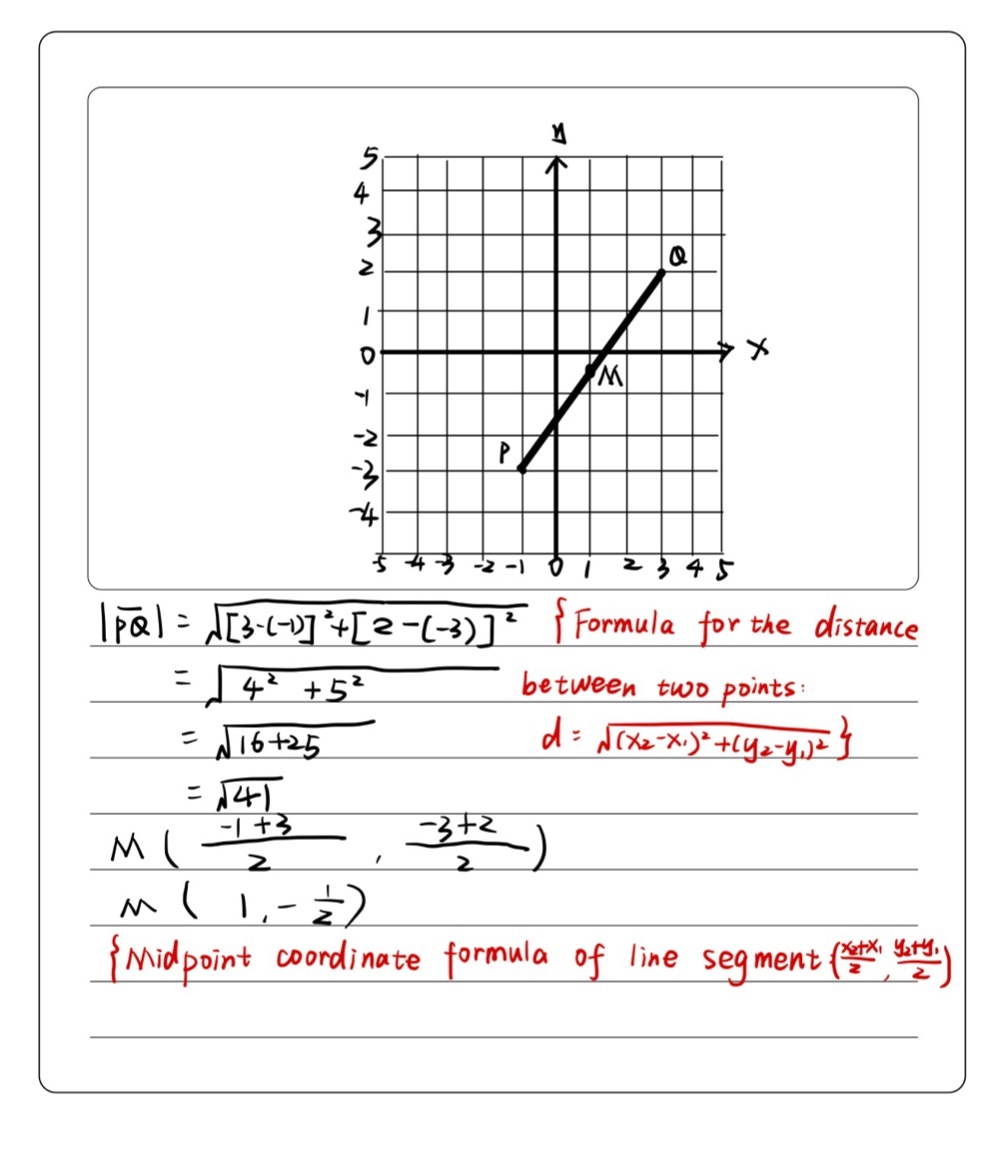 y
5
4
3
2
1
0
-1
-2
-3
-4
Q
x
M
P
-5 -4 -3 -2 -1 0 1 2 3 4 5
|PQ̅| = √([3-(-1)]²+[2-(-3)]²) {Formula for the distance
= √(4² +5²) between two points:
= √(16+25) d = √((x₂-x₁)²+(y₂-y₁)²)}
= √41
M ( (-1+3)/2 , (-3+2)/2 )
M ( 1, -1/2 )
{Midpoint coordinate formula of line segment ((x₂+x₁)/2, (y₂+y₁)/2)